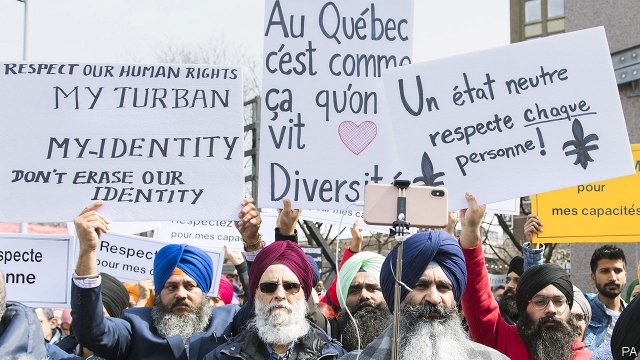 RESPECT OUR HUMAN RIGHTS
MY TURBAN
MY-IDENTITY
DON'T ERASE OUR
IDENTITY
Au Québec
c'est comme
ça qu'on
vit
Diversité
Un état neutre
respecte chaque
personne!
pour
mes capacités
specte
onne
Respecte
pour mes
Respectez
pour mes cap
PA